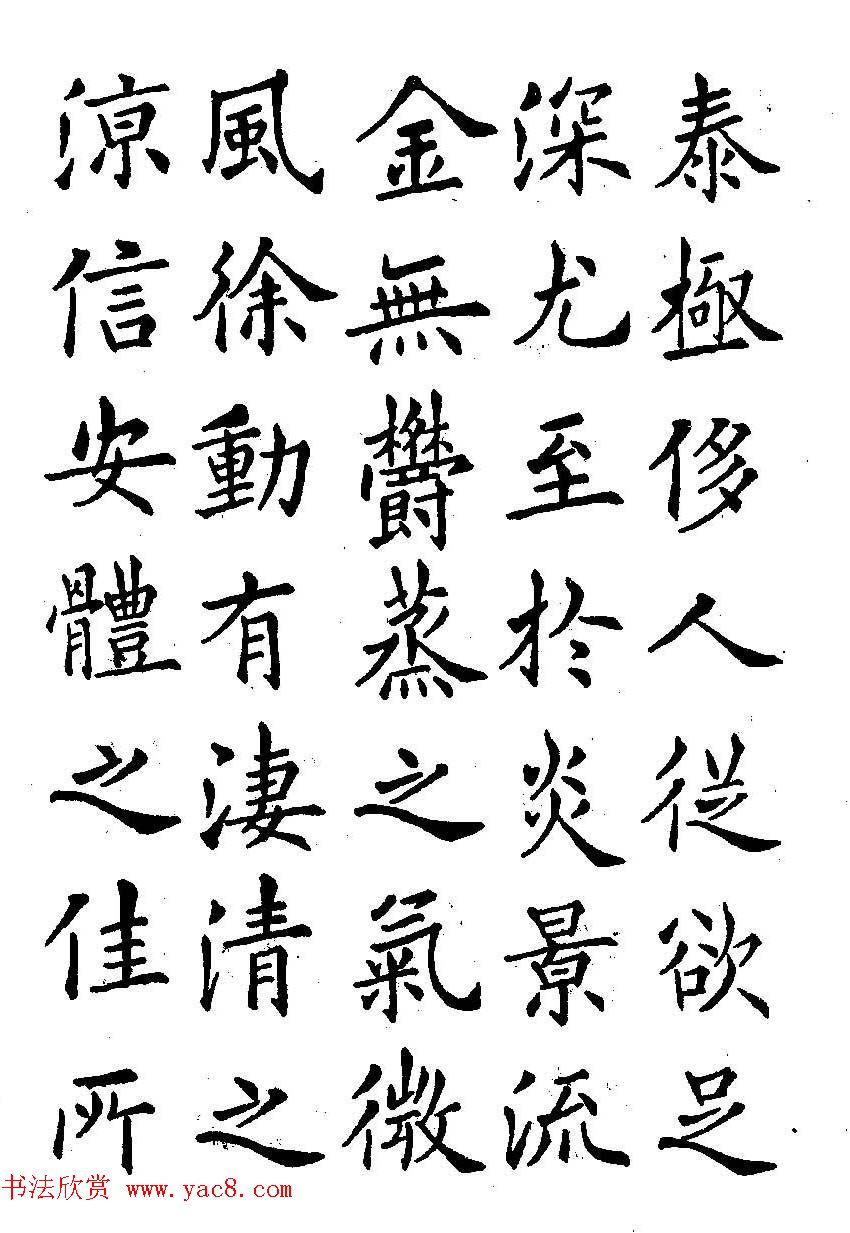 泰極侈人從欲足
深尤至於炎景流
金無鬱蒸之氣微
風徐動有淒清之
涼信安體之佳所
书法欣赏 www.yac8.com